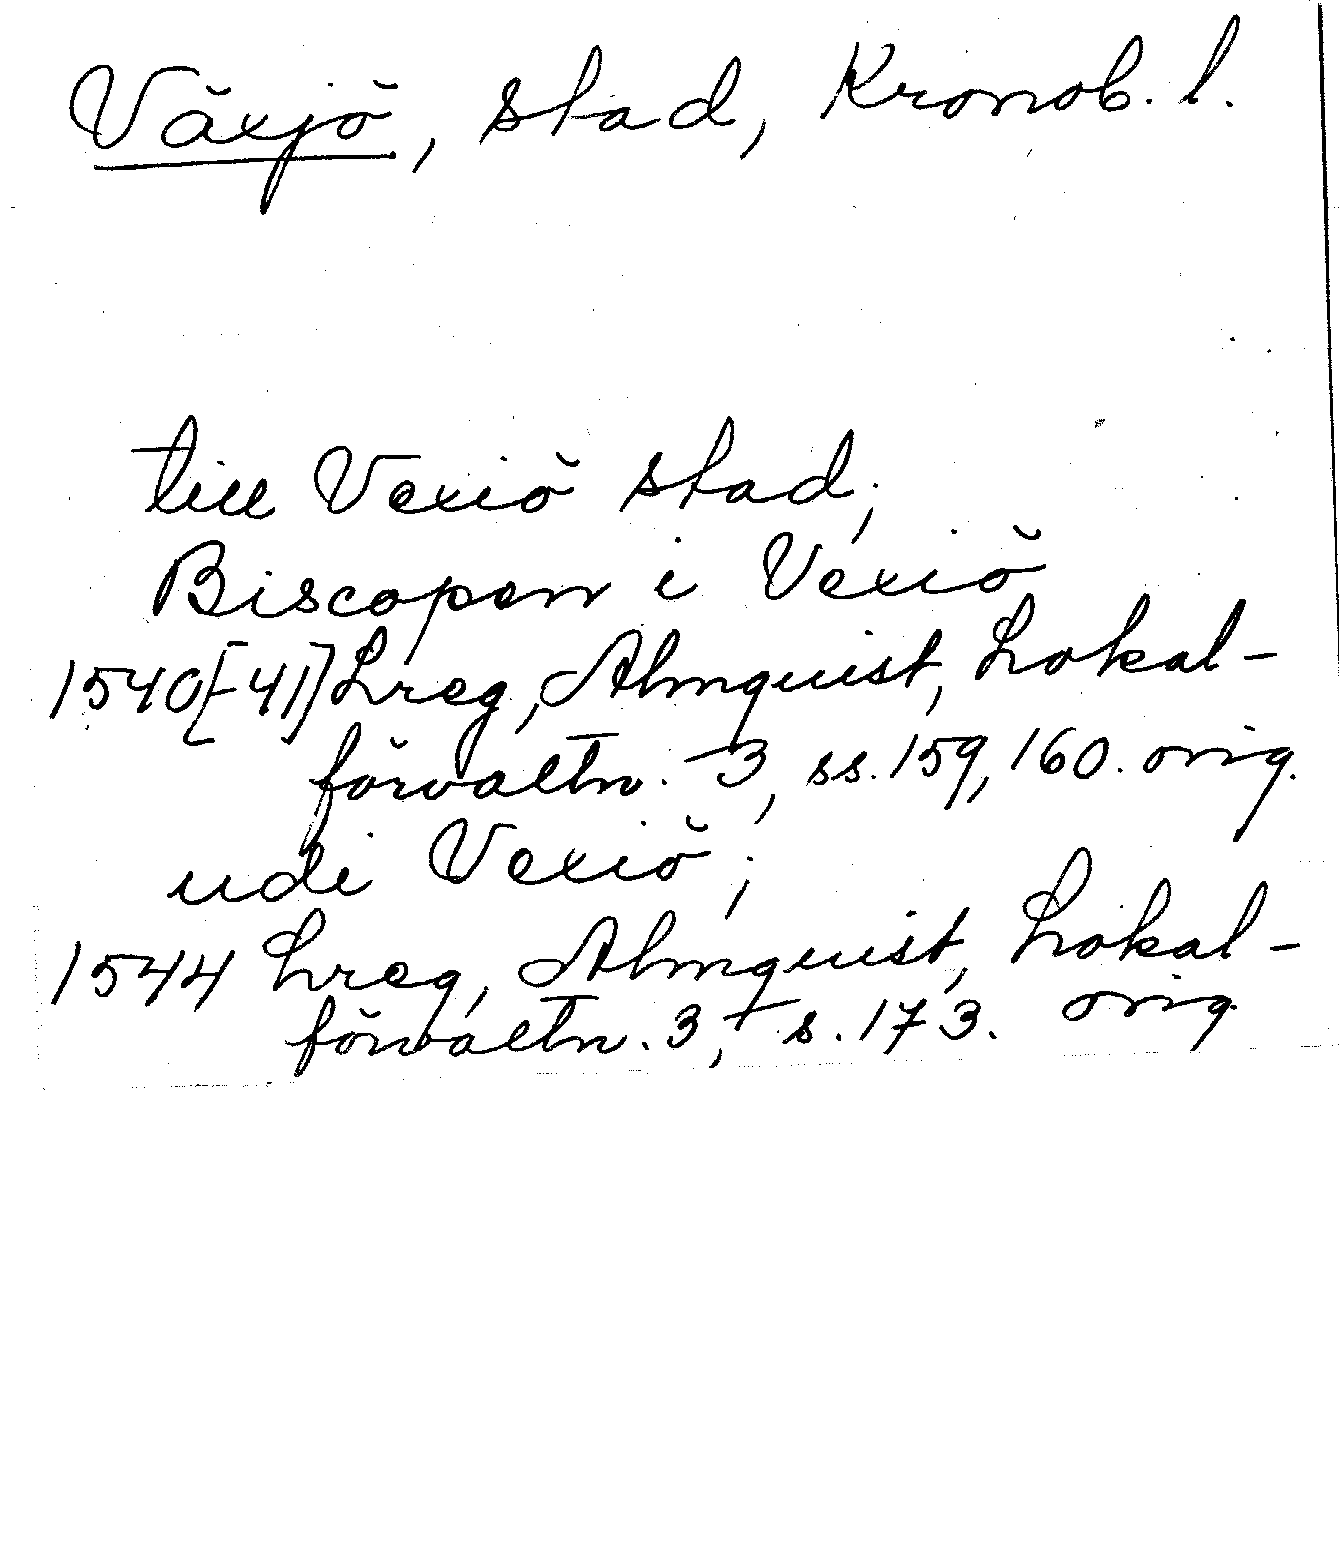 Växjö, stad, Kronob. l.
till Vexiö stad;
Biscopen i Vexiö
1540[-41] Lreg, Almquist, Lokal-
förvaltn. 3, ss. 159, 160. orig.
udi Vexiö;
1544 Lreg, Almquist, Lokal-
förvaltn. 3, s. 173. orig.